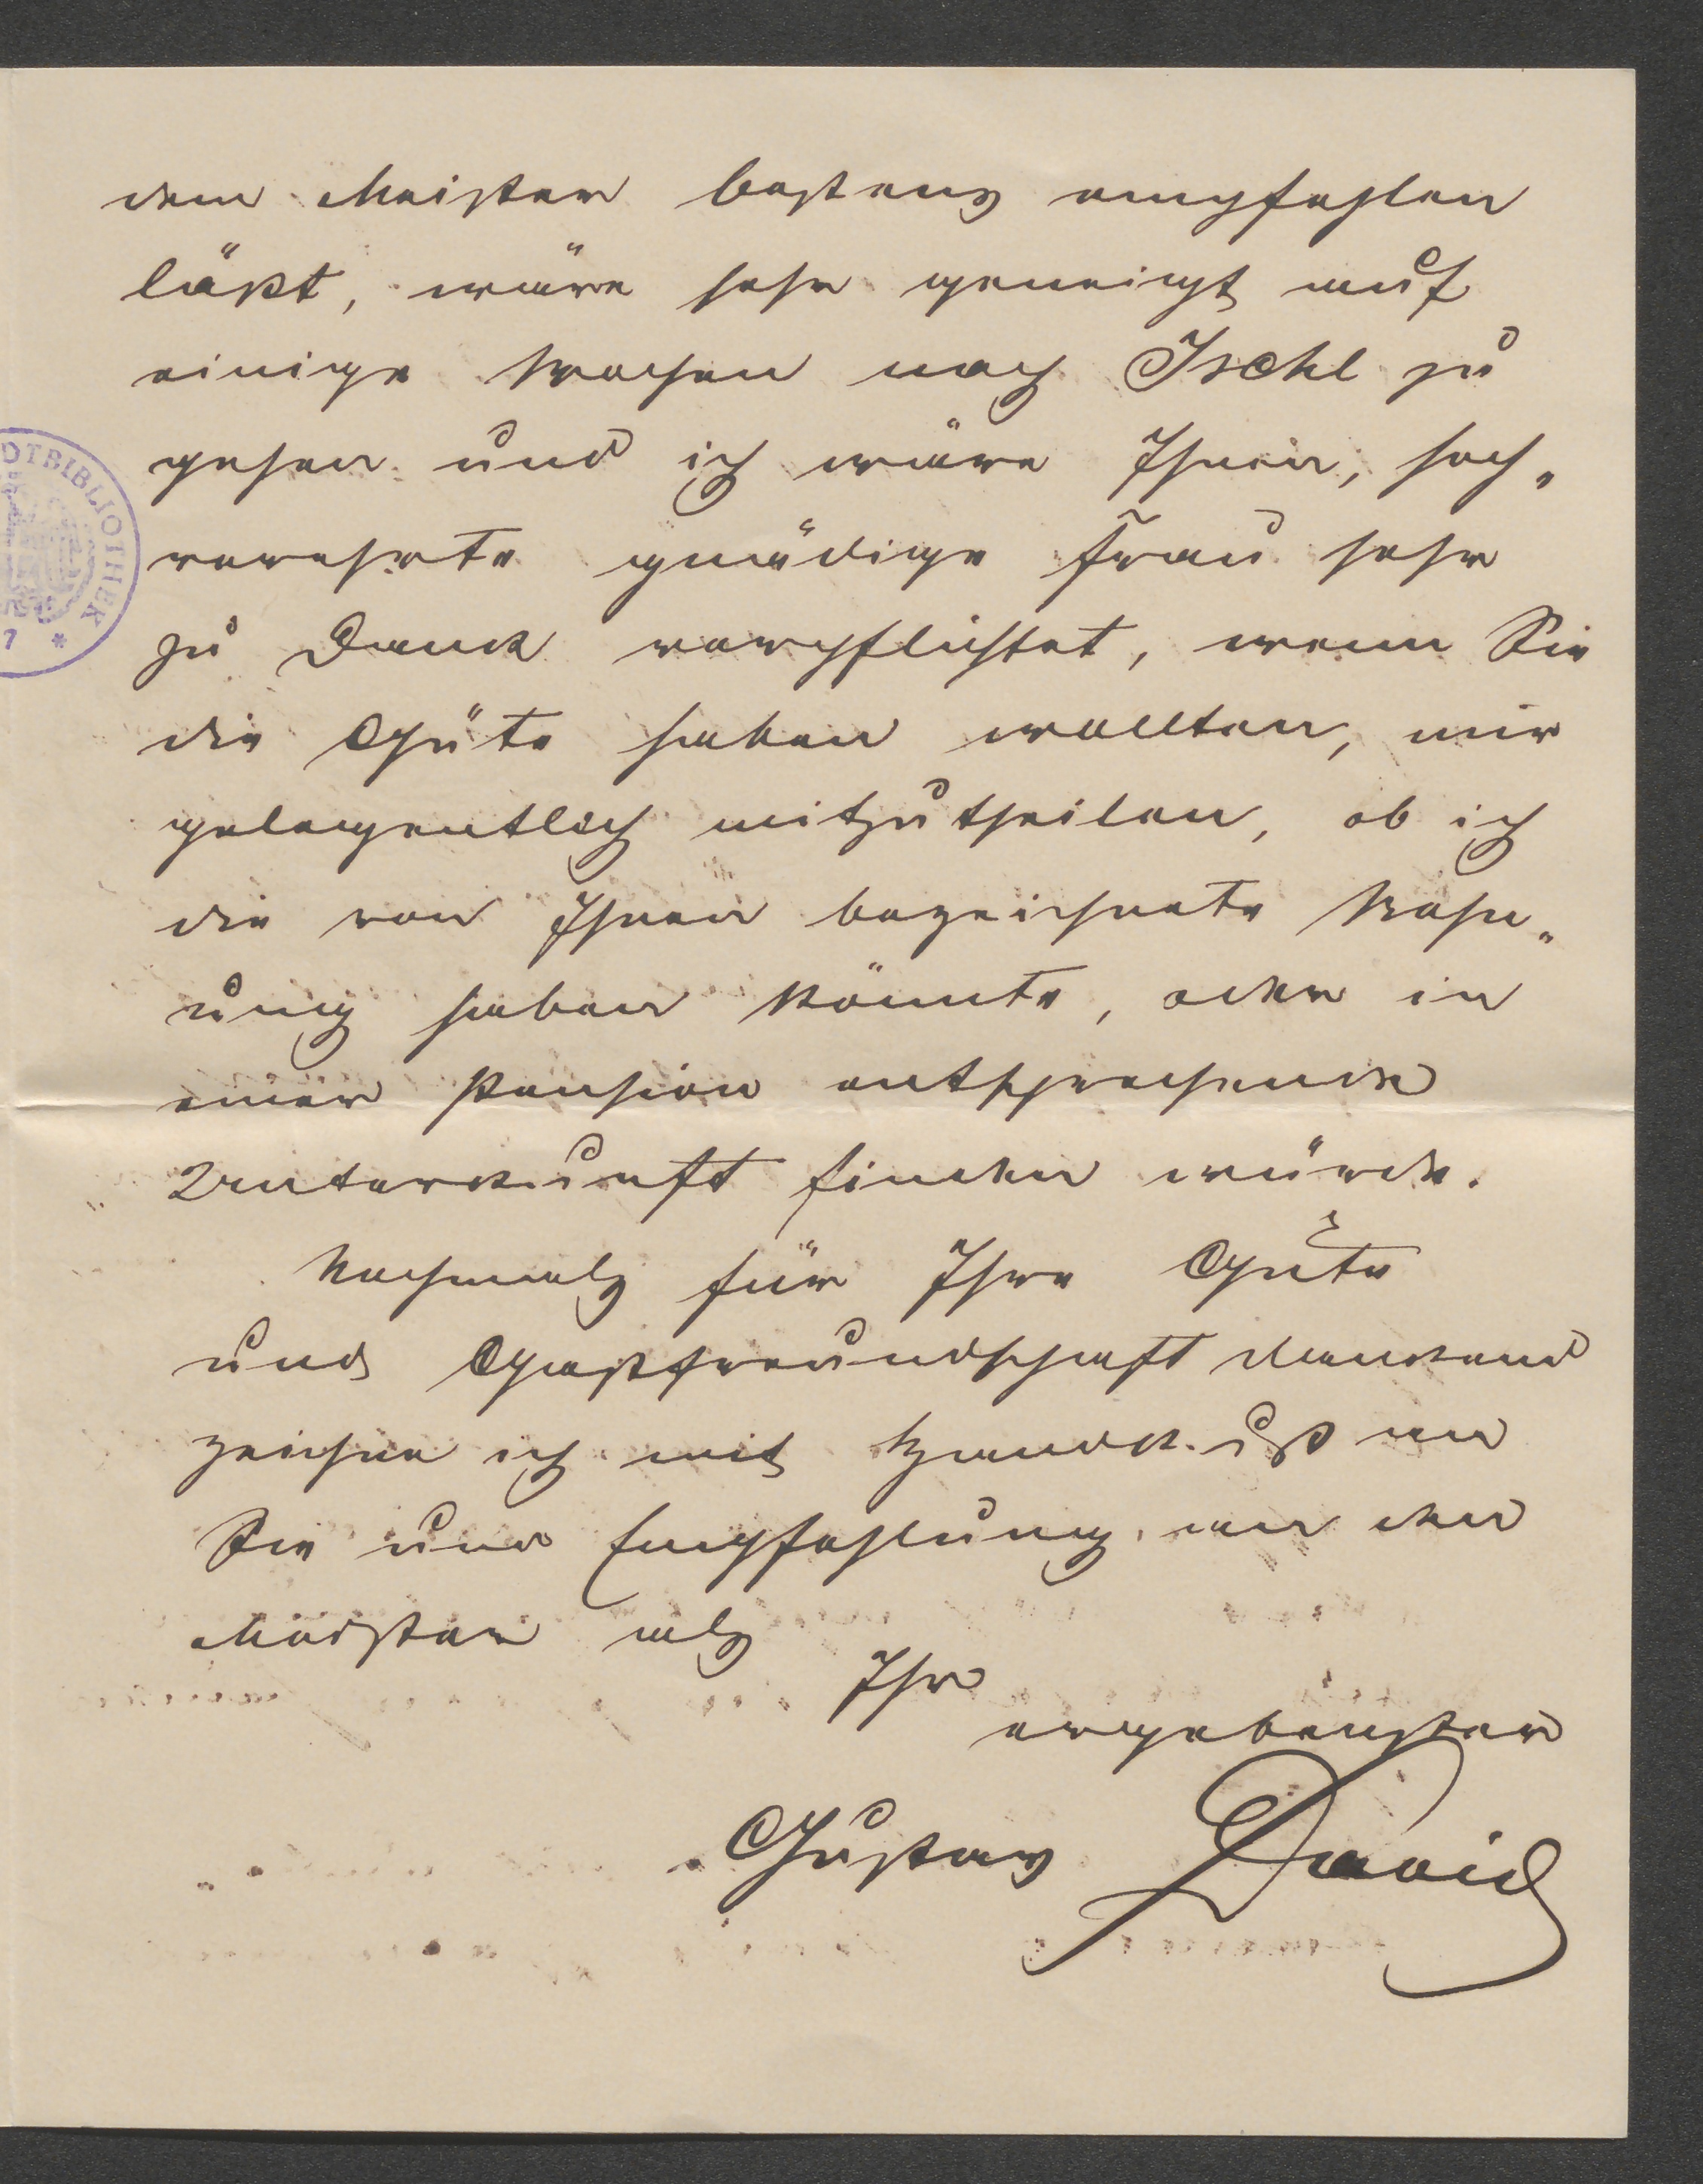 dem Meister bestens empfehlen
läßt, wäre sehr geneigt auf
einige Wochen nach Ischl zu
gehen und ich wäre Ihnen, hoch-
verehrte gnädige Frau sehr
zu Dank verpflichtet, wenn Sie
die Güte haben wollten, mir
gelegentlich mitzutheilen, ob ich
die von Ihnen bezeichnete Wohn-
ung haben könnte, oder in
einer Pension entsprechende
Unterkunft finden würde.
Nochmals für Ihre Güte
und Gastfreundschaft dankend
zeichne ich mit Handkuß an
Sie und Empfehlung an den
Meister als
Ihr
ergebenster
Gustav David
DTBIBLIOTHEK
7 *